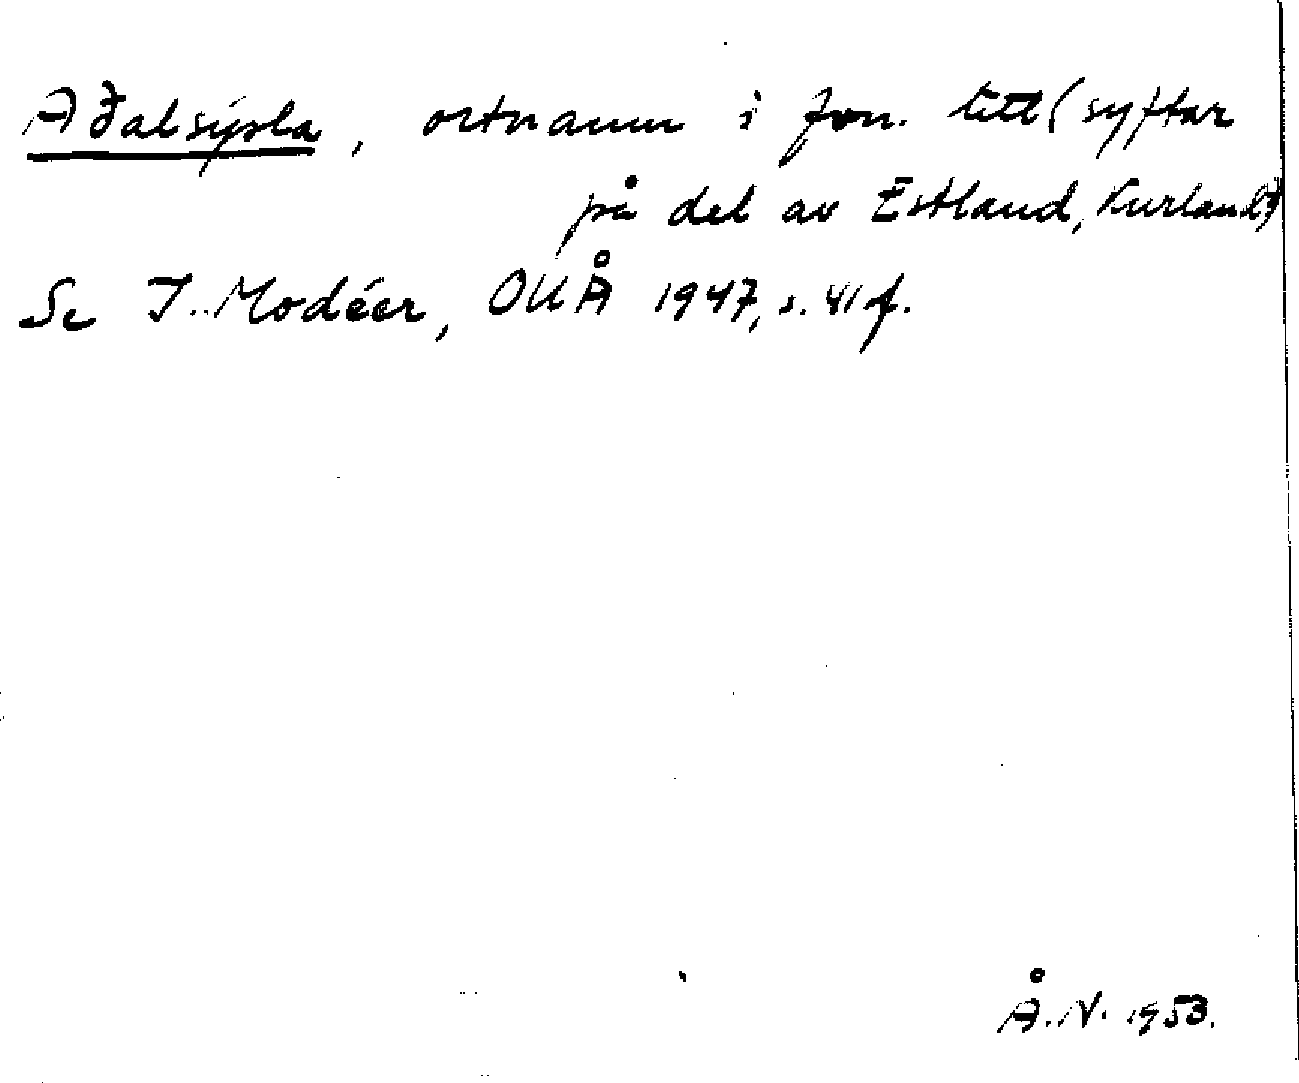 Aðalsýsla, ortnamn i fvn. litt (syftar
på del av Estland, Kurland)
Se I. Modéer, OUÅ 1947, s. 41 f.
Å. N. 1953.